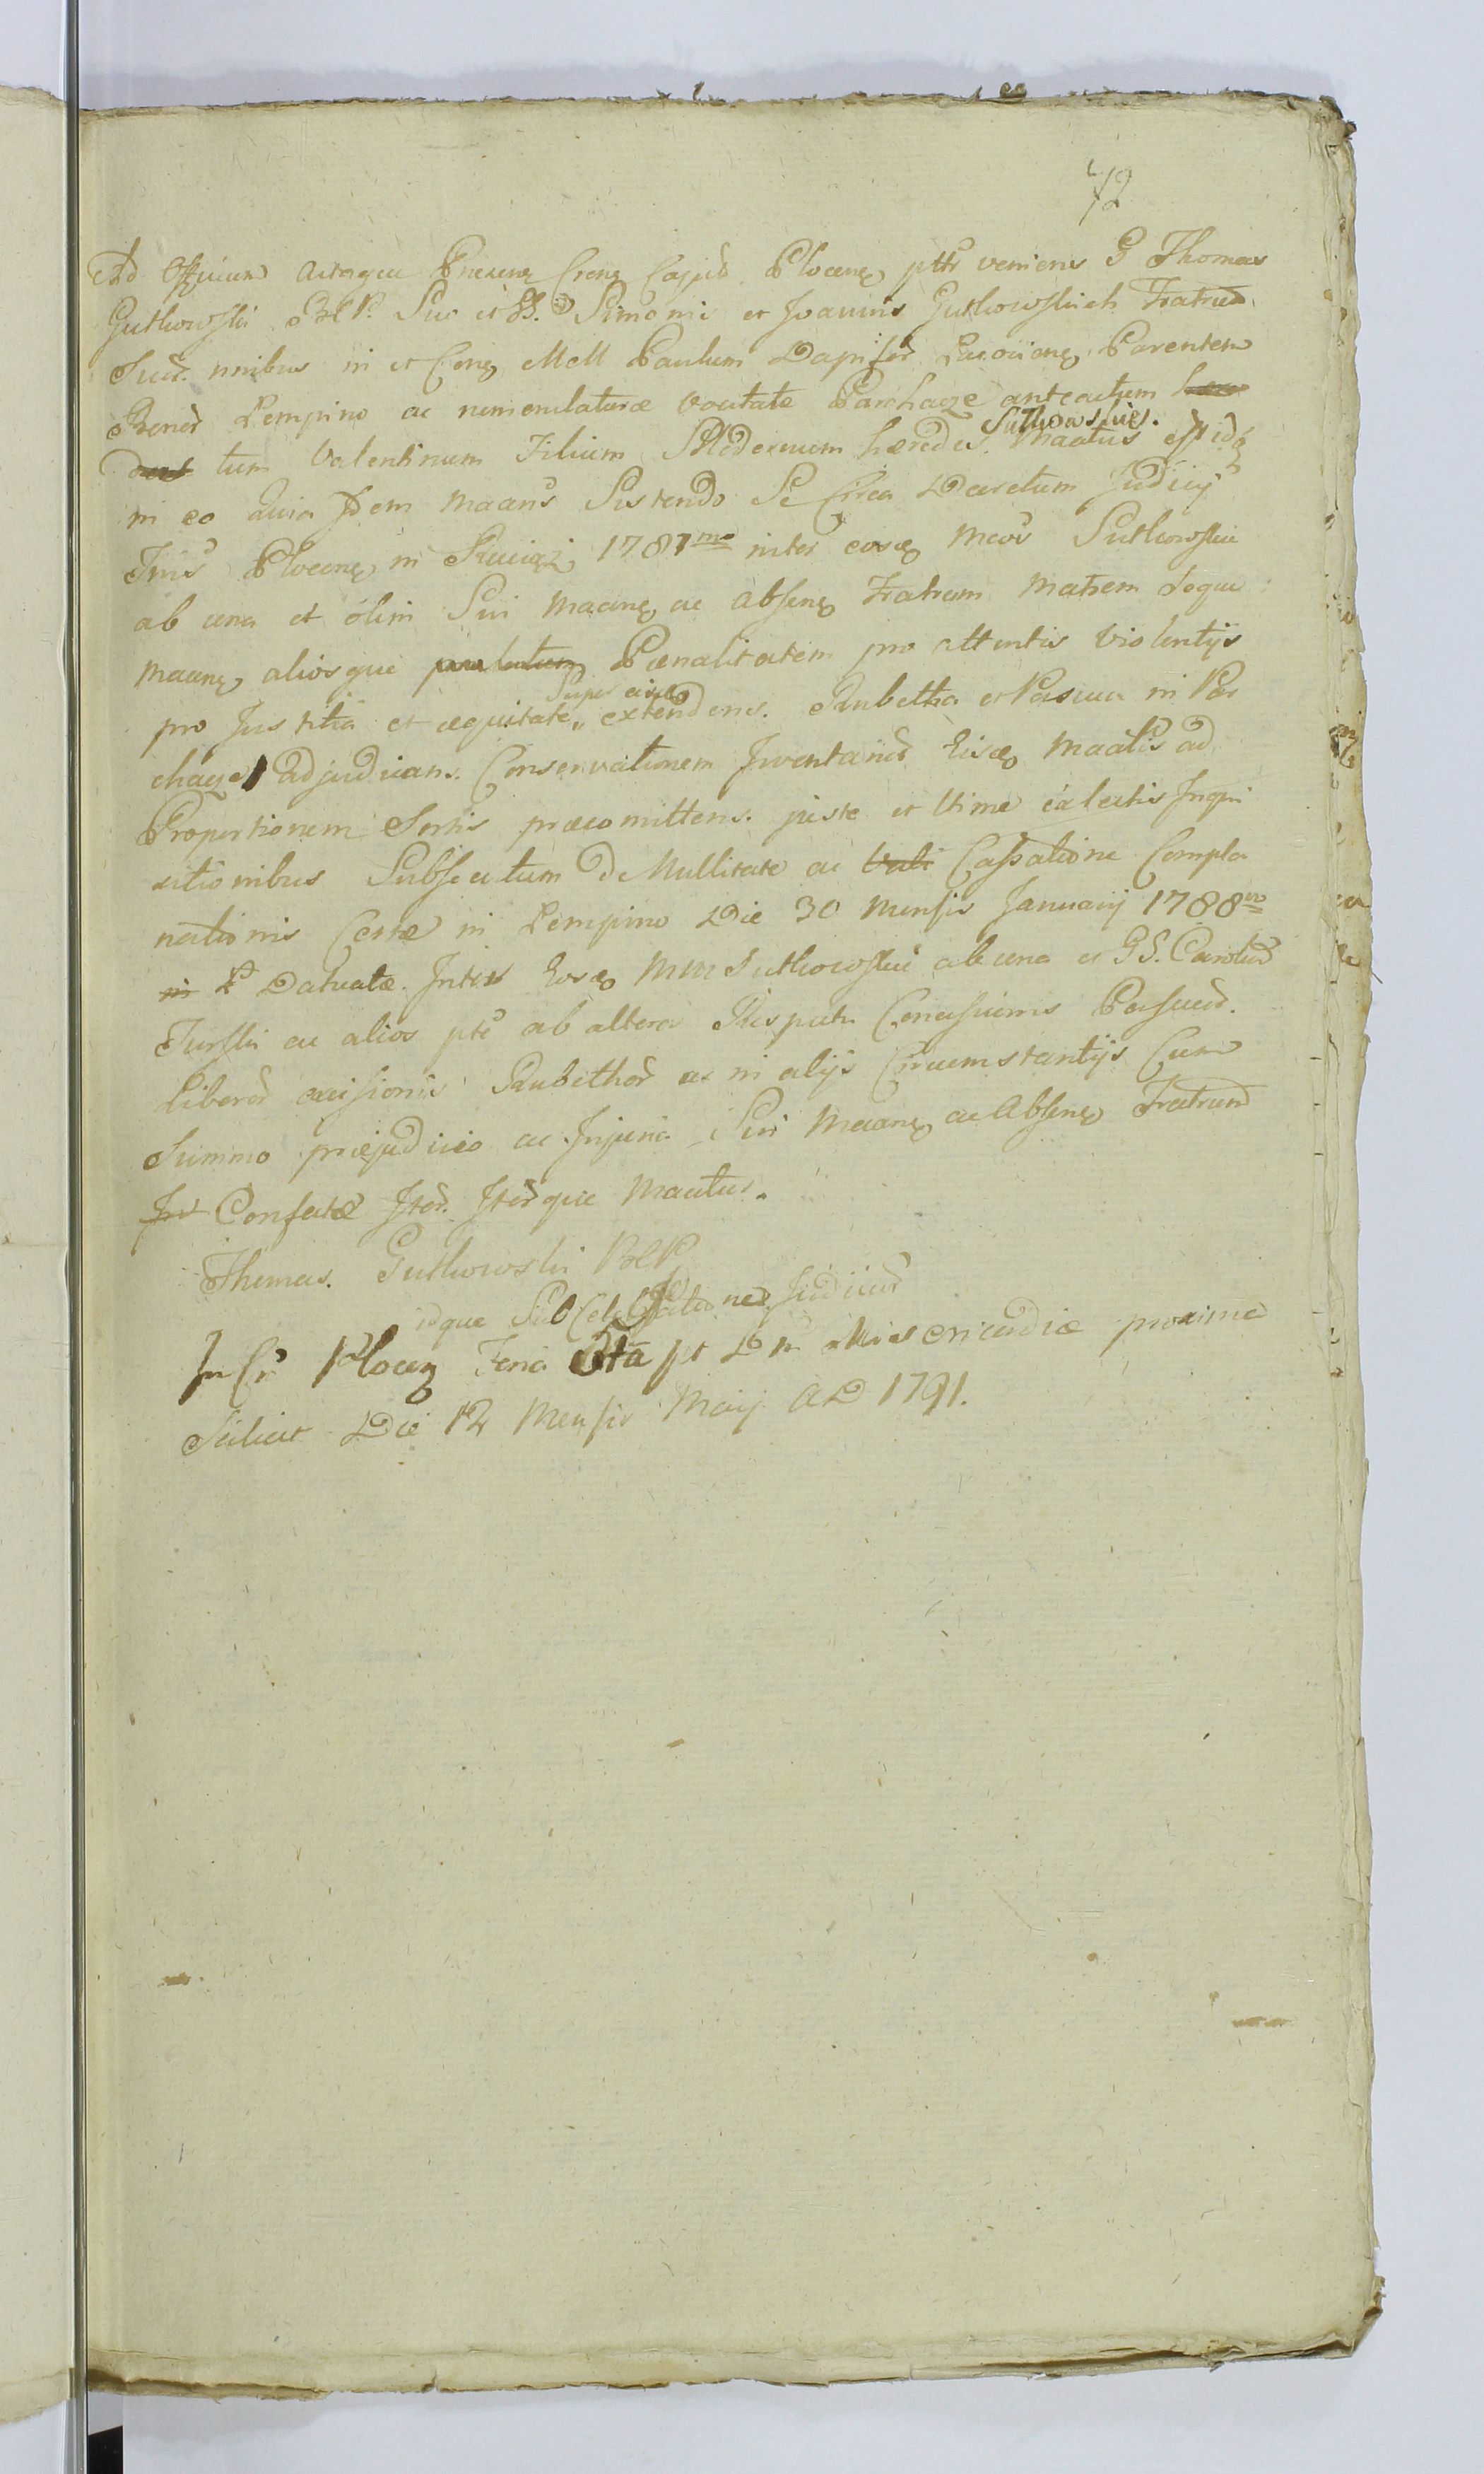 72
Ad Officium Actaque Præsena Crena Capitud Plocena pttr veniens G Thomas
Gutkowski BHP. Suo et SS. Simonis et Joannis Gutkowskich Fratrud
Suor. nnibus in et Cona MM Paulum Dapifer Parentem
Bonor Lempino ac nomenclaturæ vocitatæ Parchaęże anteactum
tum Valentinum Filium Modernum hæredes Sutkowskies. Maatus est idq
in eo Quia Idem Maans Sistendo Se Circa Decretum Judicij
Tnis Plocena in Raciąż 1781mo inter eosq Mcos Sutkowskie
ab una et olim Sui Maana ac Absena Fratrum Matrem Seque
Maana aliosque Pœnalitatem pro attentis Violentijs
pro Justitia et æquitate Super eisq extendens. Rubetha et Pascua in Par
chaęże Adjudicans. Conservationem Inventarior Eisq Maatis ad
Proportionem Sortis præcomittens. juste et ltime ex lectis Inqui
sitionibus Subsecutum De Nullitate ac Vali Cassatione Compla
nationis Certæ in Lempino Die 30 Mensis Januarij 1788vo
in P Datuatæ. Inter Eosq MM Sutkowskie ab una et GS. Carolud
Turski ac alios pte ab altera Respectu Concessionis Pascuor.
liberæ excisionis Rubethor ac in alijs Circumstantijs Cum
Summo præjudicio ac Injuria Sui Maana ac Absena Fratrud
Int Confectæ Iter. Iterque Maatus.
Thomas. Gutkowski BHP
idque Sub Judiciord
In Cr Plocen Feria 5ta pt Dm Misericordiæ proxima
Scilicet Die 12 Mensis Maij AD 1791.